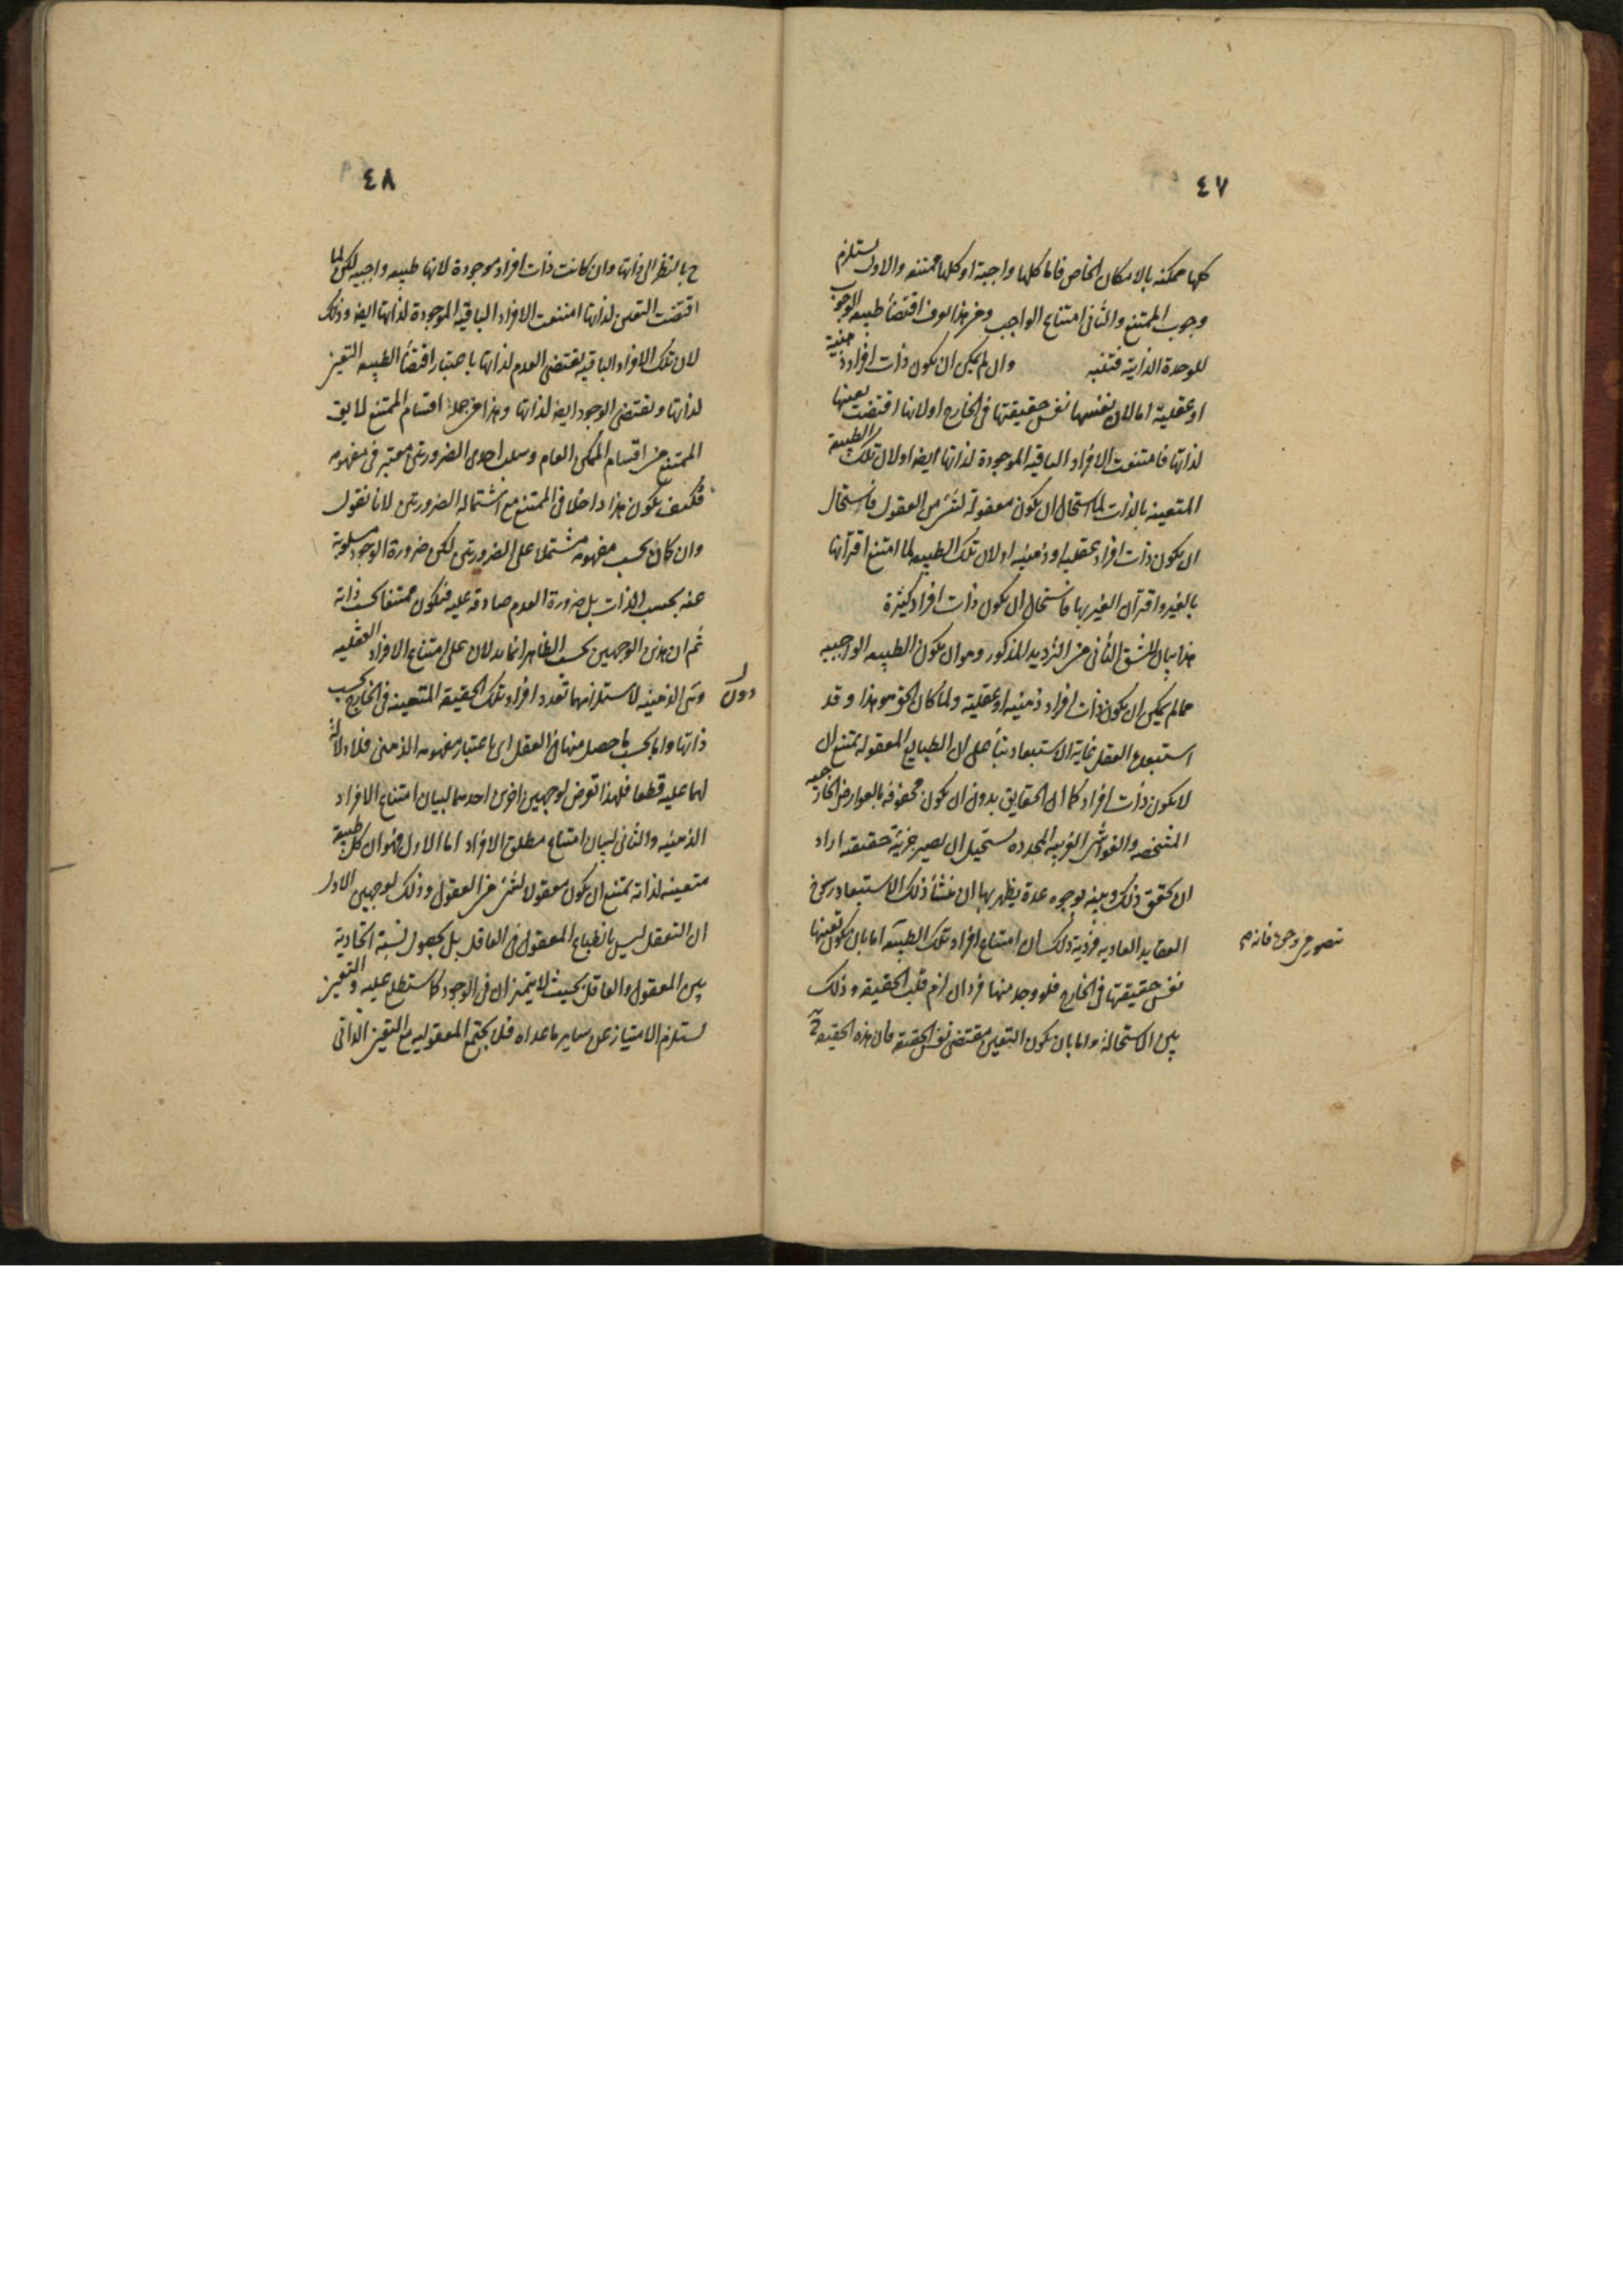 ٤٧
كلها ممكنه بالامكان الخاص فاما كلها واجبة او كلها ممتنعه والاول يستلزم
وجوب الممتنع والثانى امتناع الواجب ومن هذا يعرف اقتضاء طبيعه الوجوب
للوحدة الذاتية فتنبه وان لم يكن ان يكون ذات افراد ذهنية
او عقلية اما لان نفسها نفس حقيقتها فى الخارج او لانها اقتضت تعينها
لذاتها فامتنعت الافراد الباقيه الموجودة لذاتها ايضا او لان تلك الطبيعة
المتعينه بالذات لما استحال ان يكون معقولة لشئ من العقول فاستحال
ان يكون ذات افراد عقليه او ذهنيه او لان تلك الطبيعه لما امتنع اقترانها
بالغير واقتران الغير بها فاستحال ان يكون ذات افراد كثيرة
هذا بيان الشق الثانى من الترديد المذكور وهو ان يكون الطبيعه الواجبيه
مما لم يكن ان يكون ذات افراد ذهنيه او عقلية ولما كان الحق هو هذا وقد
استبعده العقل غاية الاستبعاد بناء على ان الطبايع المعقوله يمتنع ان
لا يكون ذات افراد كما ان الحقايق بدون ان يكون محفوفه بالعوارض الخارجيه
المشخصه والغواشى الغريبه المحدده يستحيل ان يصير جزئية حقيقيه اراد
ان يحقق ذلك ويبينه بوجوه عدة يظهر بها ان منشأ ذلك الاستبعاد رسوخ
العقايد العاديه ذلك ان امتناع افراد تلك الطبيعه اما بان يكون تعينها
نفس حقيقتها فى الخارج فلو وجد منها فردان لزم قلب الحقيقه وذلك
بين الاستحالة واما بان يكون التعين مقتضى نفس الحقيقه فان هذه الحقيقه
٤٨
ح بالنظر الى ذاتها وان كانت ذات افراد موجودة لانها طبيعه واجبيه لكن لما
اقتضت التعين لذاتها امتنعت الافراد الباقيه الموجودة لذاتها ايضا وذلك
لان تلك الافراد الباقيه يقتضى العدم لذاتها باعتبار اقتضاء الطبيعه التعين
لذاتها ويقتضى الوجود ايضا لذاتها وهذا من جملة اقسام الممتنع لا يق
الممتنع من اقسام الممكن العام وسلب احدى الضرورتين معتبر فى مفهومه
فكيف يكون هذا داخلا فى الممتنع مع اشتماله الضرورتين لانا نقول
وان كان بحسب مفهومه مشتملا على الضرورتين لكن ضرورة الوجود مسلوبة
عنه بحسب الذات بل ضرورة العدم صادقه عليه فيكون ممتنعا بحسب ذاته
ثم ان هذين الوجهين بحسب الظاهر انما يدلان على امتناع الافراد العقليه
دون
الذهنيه لاستلزامهما تعدد افراد تلك الحقيقه المتعينه فى الخارج بحسب
ذاتها واما بحسب ما حصل منها فى العقل اى باعتبار مفهومه الذهنى فلا دلالة
لهما عليه قطعا فلهذا تعرض لوجهين اخرين احدهما لبيان امتناع الافراد
الذهنيه والثانى لبيان امتناع مطلق الافراد اما الاول فهو ان كل طبيعة
متعينه لذاته يمتنع ان يكون معقولا لشئ من العقول وذلك لوجهين الاول
ان التعقل ليس بانطباع المعقول فى العاقل بل بحصول نسبة اتحادية
بين المعقول والعاقل بحيث لا يتميزان فى الوجود كما ستطلع عليه والتعين
يستلزم الامتياز عن ساير ما عداه فلا يجتمع المعقوليه مع التعين الذاتى